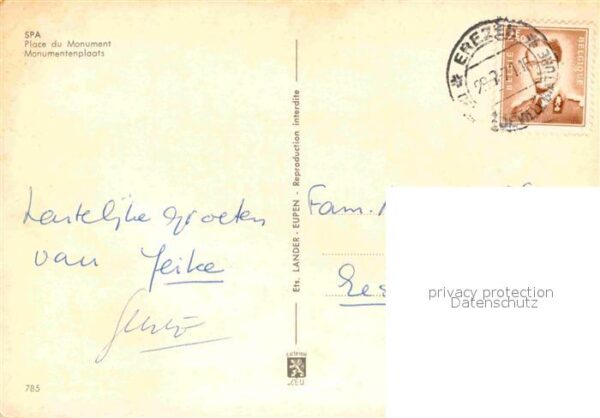 SPA
Place du Monument
Monumentenplaats
EREZEE
BELGIE BELGIQUE
Ets. LANDER - EUPEN - Reproduction interdite
Hartelijke groeten
van Jeike
Fam.
privacy protection
Datenschutz
785